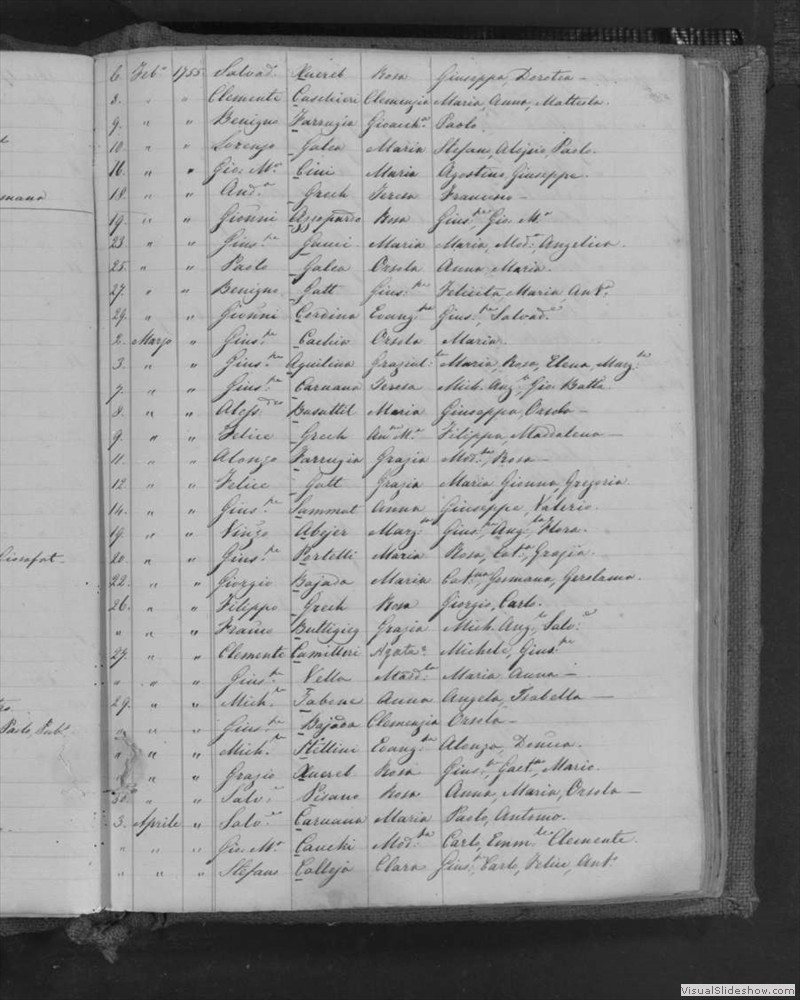 6. Feb.o 1755 Salvad. Xuereb Rosa Giuseppa, Dorotea —
8. " " Clemente Caschieri Clemenzia Maria, Anna, Mattiola
9. " " Benigno Farrugia Gioach.a Paolo.
10. " " Lorenzo Galea Maria Stefano, Alojsio, Paolo.
16. " " Gio. M.a Cini Maria Agostino, Giuseppe.
18. " " And.a Grech Teresa Francesco —
19. " " Gionni Azzopardo Rosa Gius.pe, Gio. M.a
23 " " Gius.pe Gauci Maria Maria, Mod.a Angelica.
25. " " Paolo Galea Orsola Anna, Maria.
27. " " Benigno Gatt Gius.pa Felicita, Maria, Ant.o
29. " " Gionni Cordina Evang.ta Gius.pe, Salvad.e
2. Marzo " Gius.pe Cachia Orsola Maria.
3. " " Gius.pe Aquilina Graziul.la Maria, Rosa, Elena, Marg.ta
7. " " Gius.pe Caruana Teresa Mich. Ang.o, Gio. Batta
8. " " Aless.dro Busuttil Maria Giuseppa, Orsola —
9. " " Felice Grech An.a M.a Filippa, Madalena —
11. " " Alonzo Farrugia Grazia Mod.ta, Rosa —
12. " " Felice Gatt Grazia Maria Gionna, Gregoria.
14. " " Gius.pe Sammut Anna Giuseppe, Valerio.
19. " " Vinzo Abejer Marg.ta Gius.pe, Ang.la, Flora.
20. " " Gius.pe Portelli Maria Rosa, Cat.a, Grazia.
22. " " Giorgio Bajada Maria Cat.na, Germana, Gerolama.
26. " " Filippo Grech Rosa Giorgio, Carlo.
" " " Franco Buttigieg Grazia Mich. Ang.o, Salv.e
27. " " Clemente Camilleri Agata. Michele, Gius.pe
" " " Gius.pe Vella Madd.a Maria Anna —
29. " " Mich.le Tabone Anna Angela, Isabella —
" " " Gius.pe Bajada Clemenzia Orsola —
" " " Mich.le Stellini Evang.ta Alonza,
" " " Grazio Xuereb Rosa Gius.pe, Gaet.na, Maria.
30. " " Salv.e Pisano Rosa Anna, Maria, Orsola —
3. Aprile " Salv.e Caruana Maria Paolo, Antonio.
" " " Gio. M.a Cauchi Mod.ta Carlo, Emm.le Clemente.
" " " Stefano Calleja Clara Gius.pe, Carlo, Felice, Ant.o
VisualSlideshow.com